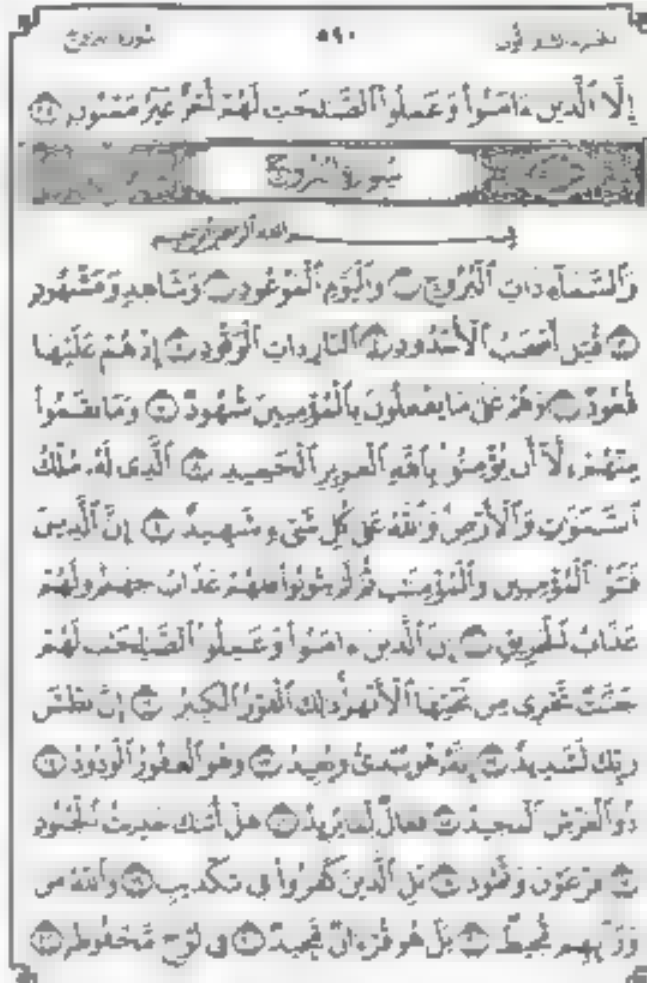 سورة البروج ٥٩٠ الجزء الثلاثون
إِلَّا ٱلَّذِينَ ءَامَنُوا۟ وَعَمِلُوا۟ ٱلصَّٰلِحَٰتِ لَهُمْ أَجْرٌ غَيْرُ مَمْنُونٍۭ ٢٥
سورة البروج
بسم الله الرحمن الرحيم
وَٱلسَّمَآءِ ذَاتِ ٱلْبُرُوجِ ١ وَٱلْيَوْمِ ٱلْمَوْعُودِ ٢ وَشَاهِدٍ وَمَشْهُودٍ
٣ قُتِلَ أَصْحَٰبُ ٱلْأُخْدُودِ ٤ ٱلنَّارِ ذَاتِ ٱلْوَقُودِ ٥ إِذْ هُمْ عَلَيْهَا
قُعُودٌ ٦ وَهُمْ عَلَىٰ مَا يَفْعَلُونَ بِٱلْمُؤْمِنِينَ شُهُودٌ ٧ وَمَا نَقَمُوا۟
مِنْهُمْ إِلَّآ أَن يُؤْمِنُوا۟ بِٱللَّهِ ٱلْعَزِيزِ ٱلْحَمِيدِ ٨ ٱلَّذِى لَهُۥ مُلْكُ
ٱلسَّمَٰوَٰتِ وَٱلْأَرْضِ وَٱللَّهُ عَلَىٰ كُلِّ شَىْءٍ شَهِيدٌ ٩ إِنَّ ٱلَّذِينَ
فَتَنُوا۟ ٱلْمُؤْمِنِينَ وَٱلْمُؤْمِنَٰتِ ثُمَّ لَمْ يَتُوبُوا۟ فَلَهُمْ عَذَابُ جَهَنَّمَ وَلَهُمْ
عَذَابُ ٱلْحَرِيقِ ١٠ إِنَّ ٱلَّذِينَ ءَامَنُوا۟ وَعَمِلُوا۟ ٱلصَّٰلِحَٰتِ لَهُمْ
جَنَّٰتٌ تَجْرِى مِن تَحْتِهَا ٱلْأَنْهَٰرُ ذَٰلِكَ ٱلْفَوْزُ ٱلْكَبِيرُ ١١ إِنَّ بَطْشَ
رَبِّكَ لَشَدِيدٌ ١٢ إِنَّهُۥ هُوَ يُبْدِئُ وَيُعِيدُ ١٣ وَهُوَ ٱلْغَفُورُ ٱلْوَدُودُ ١٤
ذُو ٱلْعَرْشِ ٱلْمَجِيدُ ١٥ فَعَّالٌ لِّمَا يُرِيدُ ١٦ هَلْ أَتَىٰكَ حَدِيثُ ٱلْجُنُودِ
١٧ فِرْعَوْنَ وَثَمُودَ ١٨ بَلِ ٱلَّذِينَ كَفَرُوا۟ فِى تَكْذِيبٍ ١٩ وَٱللَّهُ مِن
وَرَآئِهِم مُّحِيطٌۢ ٢٠ بَلْ هُوَ قُرْءَانٌ مَّجِيدٌ ٢١ فِى لَوْحٍ مَّحْفُوظٍۭ ٢٢